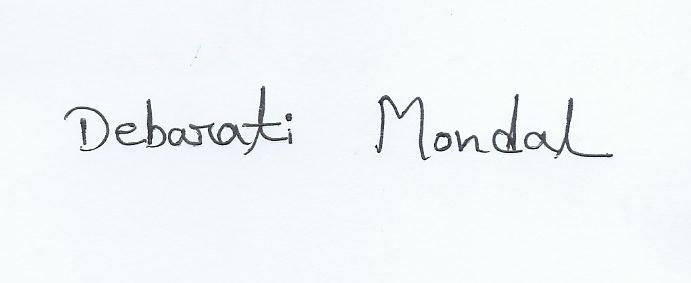 Debarati Mondal